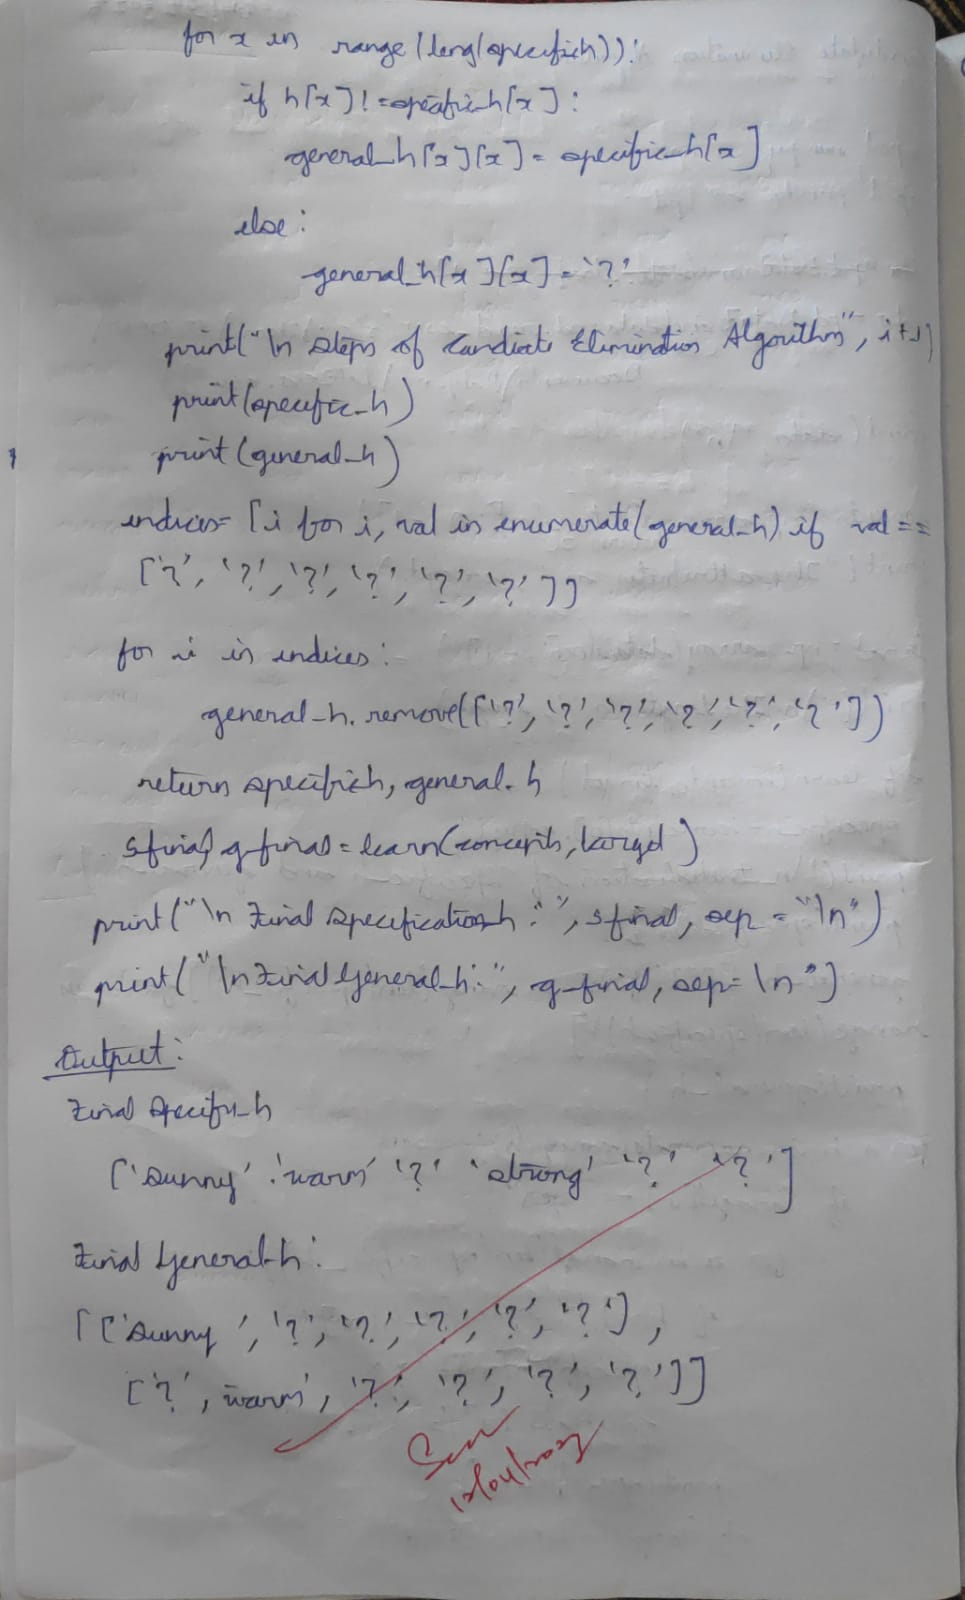 for x in range(leng(specifich)):
if h[x]!=specific_h[x]:
general_h[x][x]= specific_h[x]
else:
general_h[x][x]='?'
print("\n steps of Candiate Elimination Algorithm", i+1)
print(specific_h)
print(general_h)
indices= [i for i, val in enumerate(general_h) if val ==
['?', '?', '?', '?', '?', '?']]
for i in indices:
general_h.remove(['?', '?', '?', '?', '?', '?'])
return specifich, general_h
sfinal, g_final = learn(concepts, target)
print("\n Final specification_h:", sfinal, sep = "\n")
print("\n Final General_h:", g_final, sep= \n")
Output:
Final Specific_h
['sunny' 'warm' '?' 'strong' '?' '?']
Final General_h:
[['sunny', '?', '?', '?', '?', '?'],
['?', 'warm', '?', '?', '?', '?']]